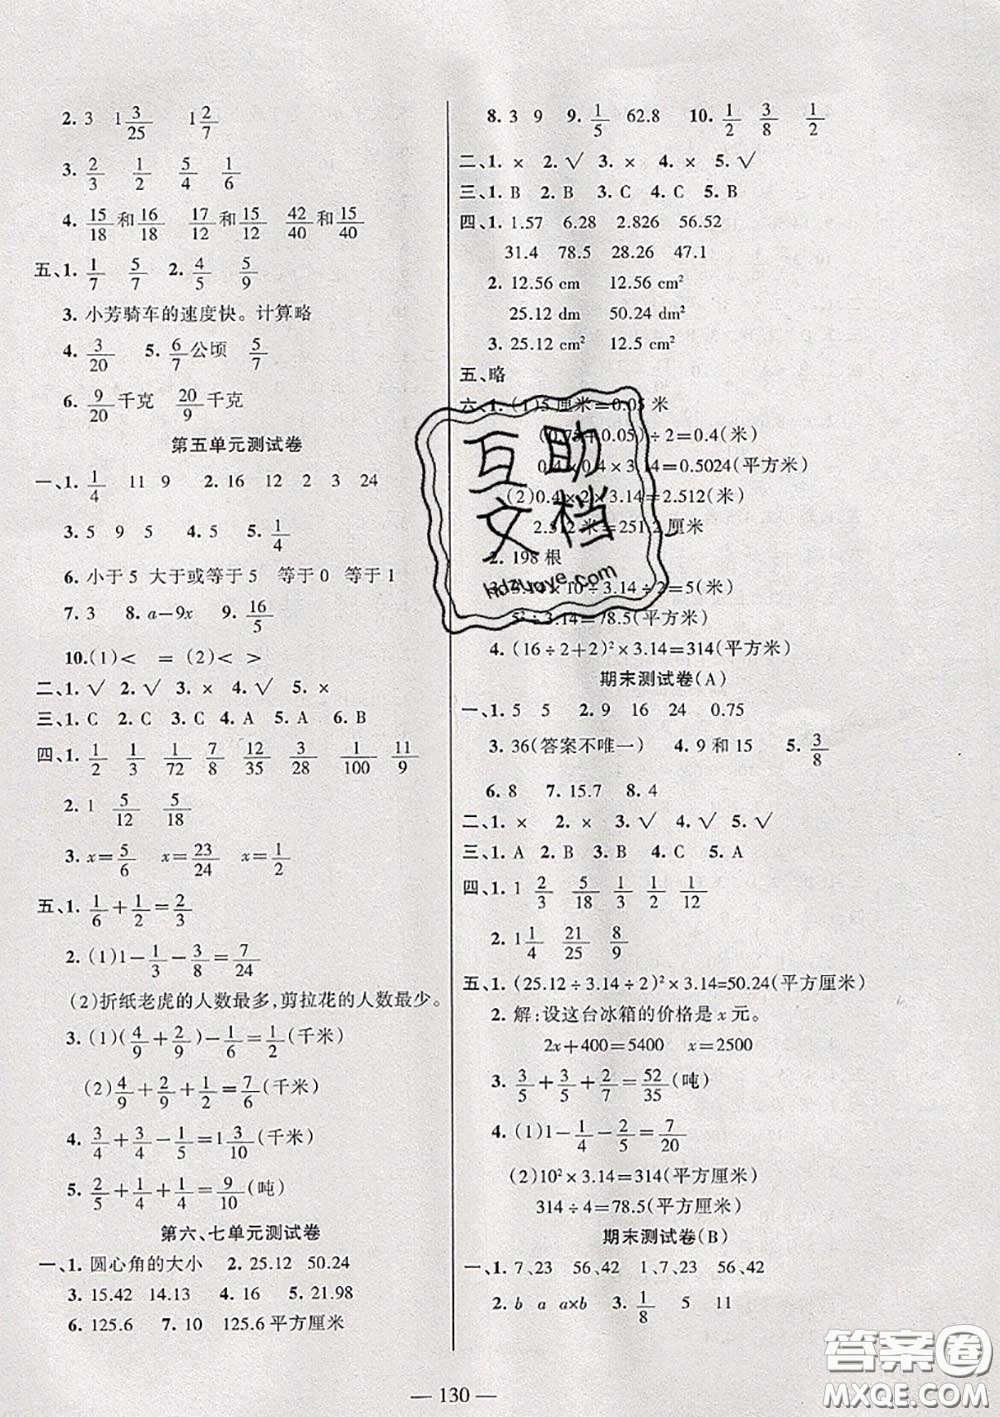 2. 3 1 3/25 1 2/7
3. 2/3 1/2 5/4 1/6
4. 15/18和16/18 17/12和15/12 42/40和15/40
五、1. 1/7 5/7 2. 4/5 5/9
3. 小芳骑车的速度快。计算略
4. 3/20 5. 6/7公顷 6/7
6. 9/20千克 20/9千克
第五单元测试卷
一、1. 1/4 11 9 2. 16 12 2 3 24
3. 5 9 5 4. 5 5 5. 1/4
6. 小于5 大于或等于5 等于0 等于1
7. 3 8. a－9x 9. 16/5
10. (1)＜ ＝ (2)＜ ＞
二、1. √ 2. √ 3. × 4. √ 5. ×
三、1. C 2. C 3. C 4. A 5. A 6. B
四、1. 1/2 1/3 1/72 7/8 12/35 3/28 1/100 11/9
2. 1 5/12 5/18
3. x＝5/6 x＝23/24 x＝1/2
五、1. 1/6＋1/2＝2/3
2. (1)1－1/3－3/8＝7/24
(2)折纸老虎的人数最多，剪拉花的人数最少。
3. (1)(4/9＋2/9)－1/6＝1/2(千米)
(2)4/9＋2/9＋1/2＝7/6(千米)
4. 3/4＋3/4－1/5＝1 3/10(千米)
5. 2/5＋1/4＋1/4＝9/10(吨)
第六、七单元测试卷
一、1. 圆心角的大小 2. 25.12 50.24
3. 15.42 14.13 4. 16 5. 21.98
6. 125.6 7. 10 125.6平方厘米
8. 3 9 9. 1/5 62.8 10. 1/2 3/8 1/2
二、1. × 2. √ 3. × 4. × 5. √
三、1. B 2. B 3. C 4. C 5. C
四、1. 1.57 6.28 2.826 56.52
31.4 78.5 28.26 47.1
2. 12.56 cm 12.56 cm²
25.12 dm 50.24 dm²
3. 25.12 cm² 12.5 cm²
五、略
六、1. (1)5厘米＝0.05米
(0.75＋0.05)÷2＝0.4(米)
0.4×0.4×3.14＝0.5024(平方米)
(2)0.4×2×3.14＝2.512(米)
2.512米＝251.2厘米
2. 198根
×10÷3.14÷2＝5(米)
5²×3.14＝78.5(平方米)
4. (16÷2＋2)²×3.14＝314(平方米)
期末测试卷(A)
一、1. 5 5 2. 9 16 24 0.75
3. 36(答案不唯一) 4. 9和15 5. 3/8
6. 8 7. 15.7 8. 4
二、1. × 2. × 3. √ 4. √ 5. √
三、1. A 2. B 3. B 4. C 5. A
四、1. 1 2/3 5/18 1/3 1/2 1/12
2. 1 1/4 21/25 8/9
五、1. (25.12÷3.14÷2)²×3.14=50.24(平方厘米)
2. 解：设这台冰箱的价格是x元。
2x＋400＝5400 x＝2500
3. 3/5＋3/5＋2/7＝52/35(吨)
4. (1)1－1/4－2/5＝7/20
(2)10²×3.14＝314(平方厘米)
314÷4＝78.5(平方厘米)
期末测试卷(B)
一、1. 7、23 56、42 1、7、23 56、42
2. b a a×b 3. 1/8 5 11
130
互助文档
hdzuoye.com
答案圈
MXQE.COM